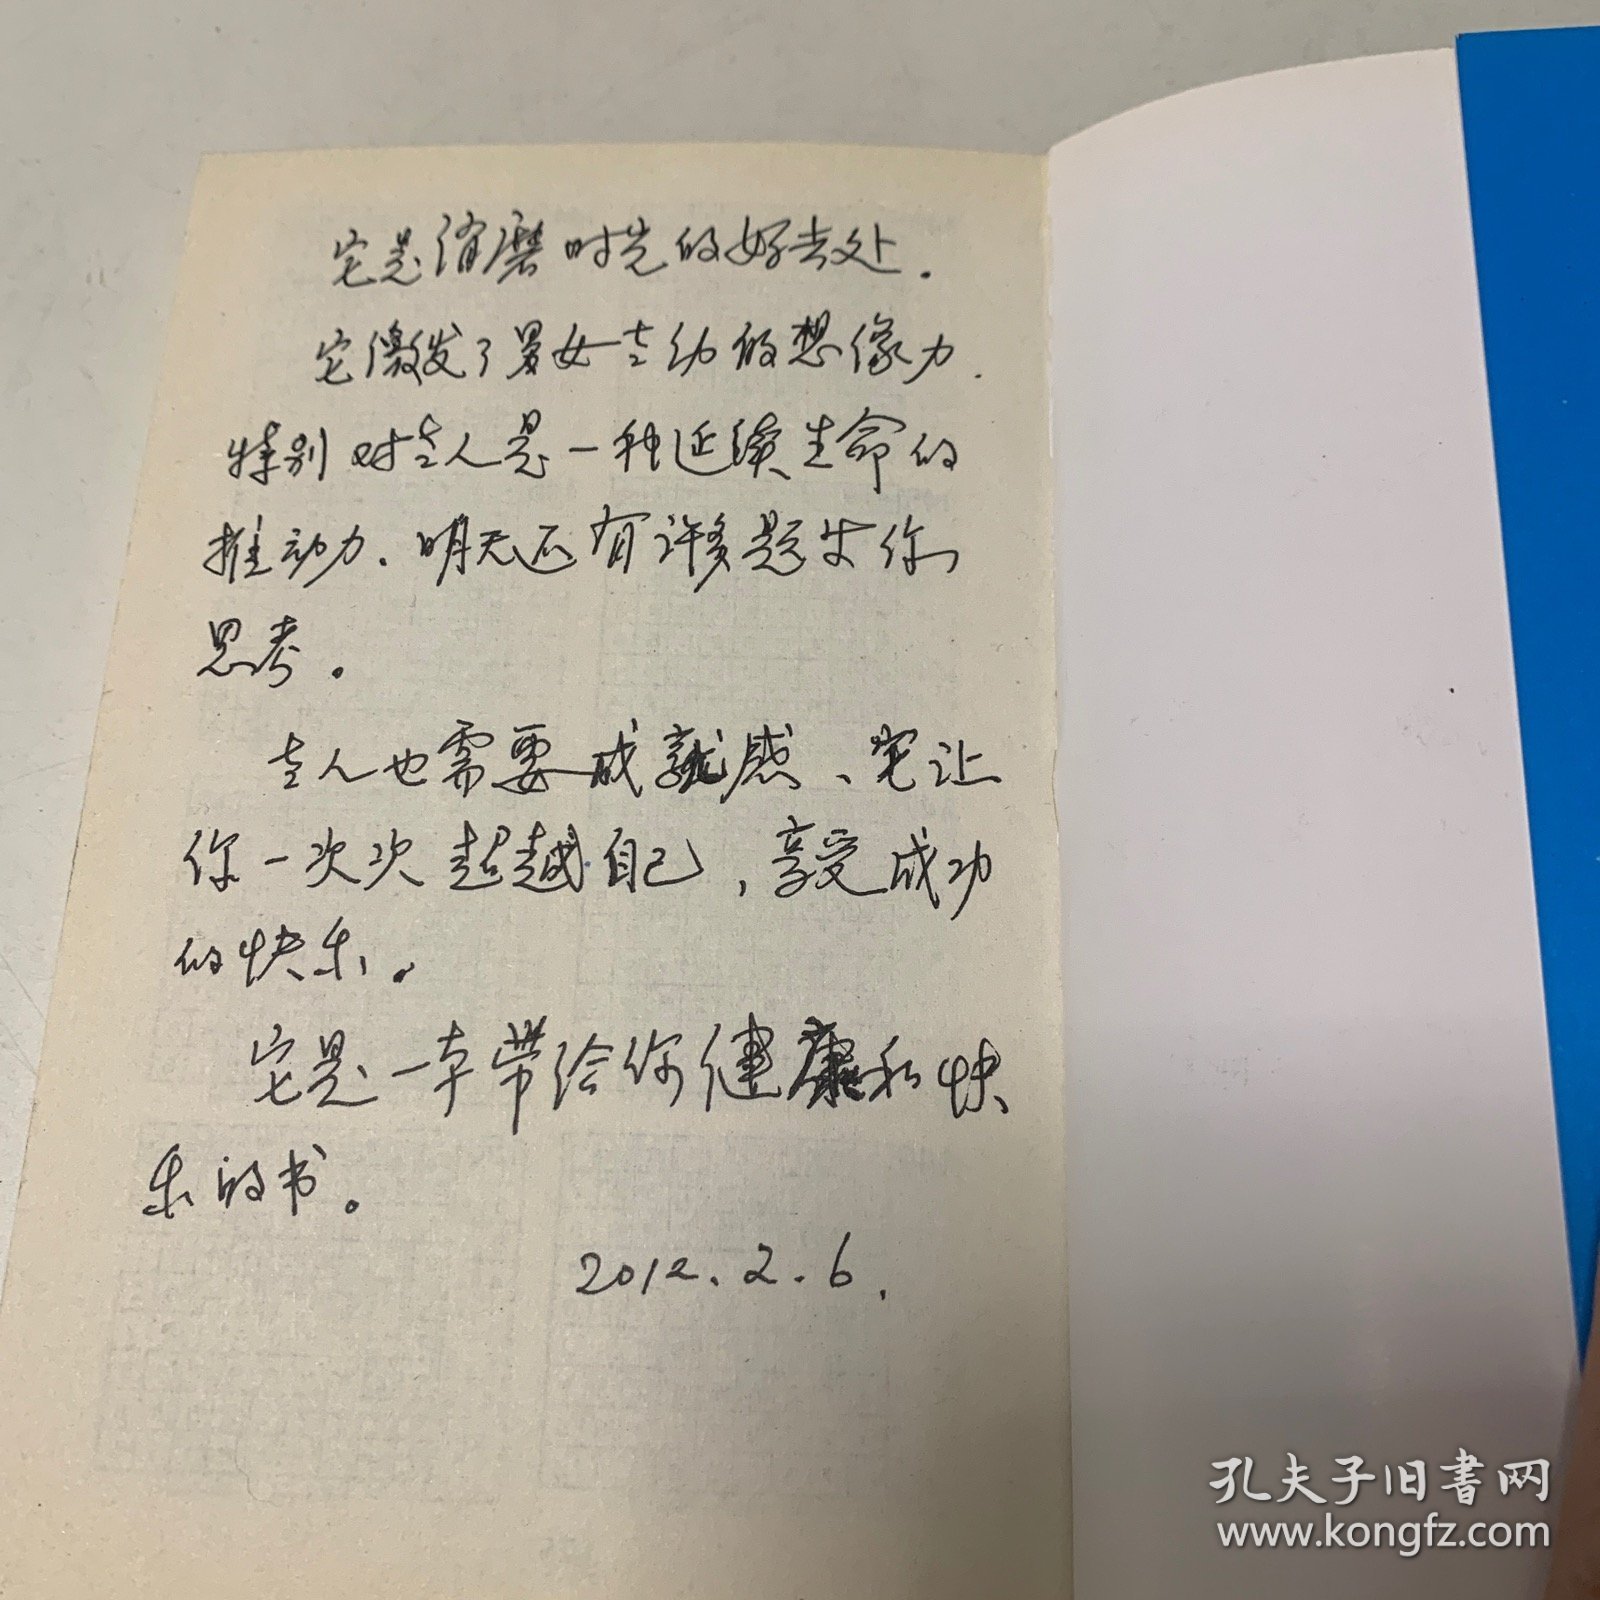 它是消磨时光的好去处.
它激发了男女老幼的想像力.
特别对老人是一种延续生命的
推动力.明天还有许多题等你
思考。
老人也需要成就感、它让
你一次次超越自己,享受成功
的快乐。
它是一本带给你健康和快
乐的书。
2012.2.6.
孔夫子旧书网
www.kongfz.com